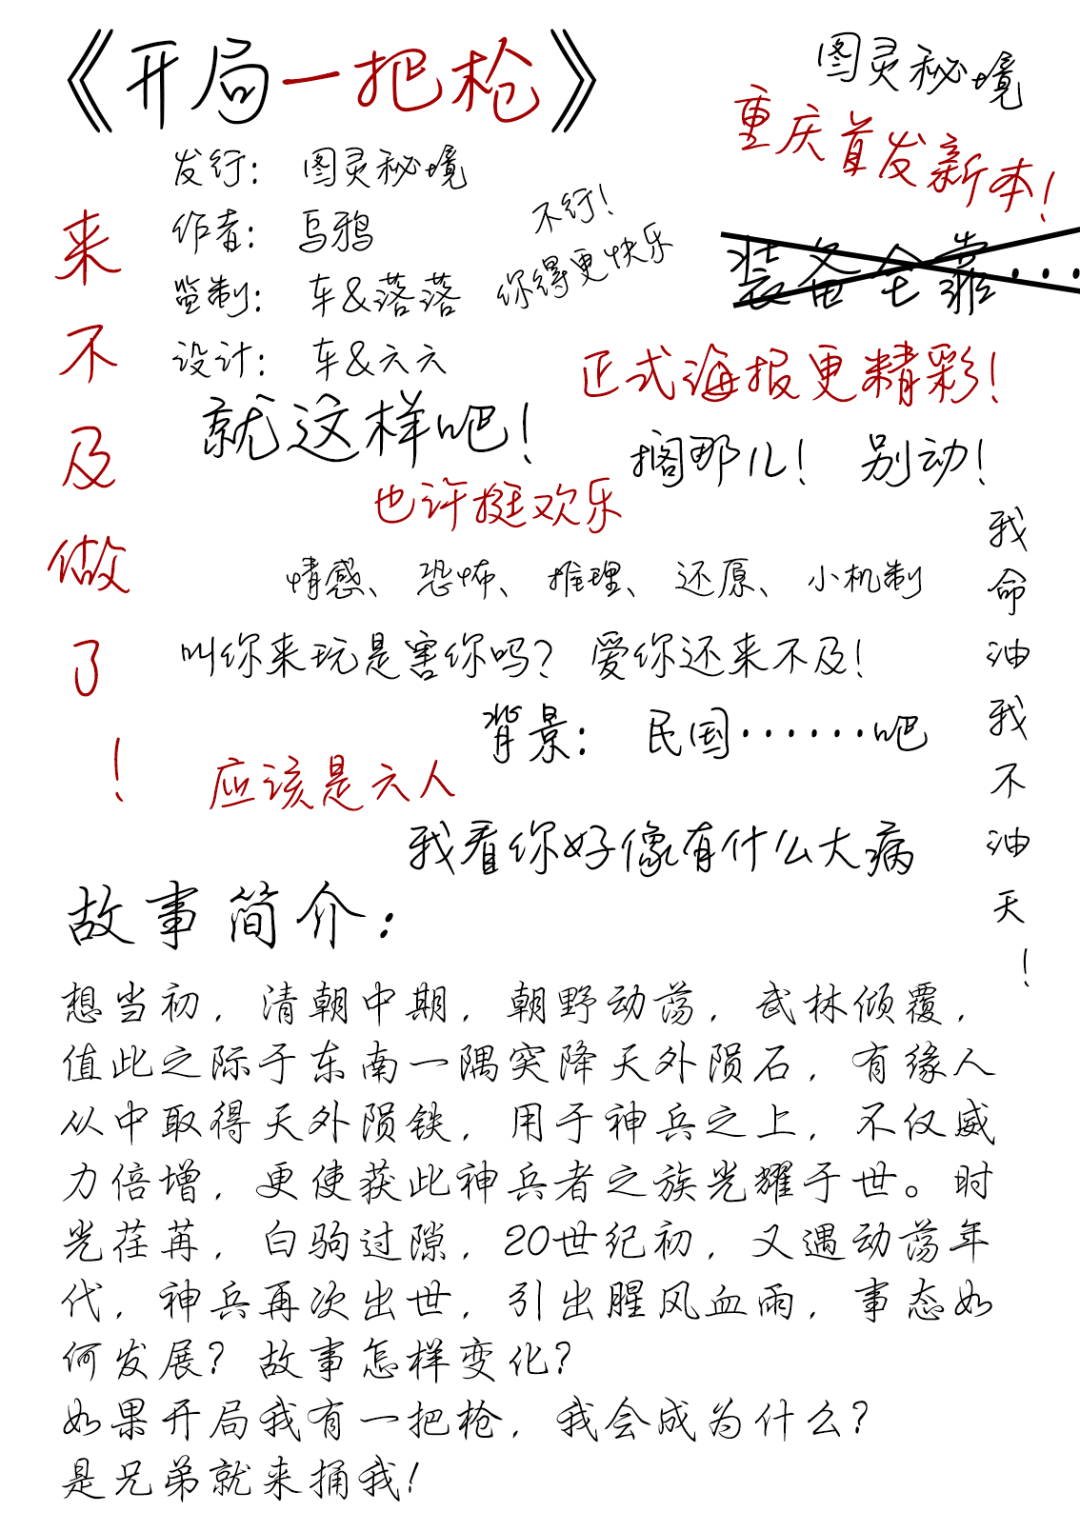 《开局一把枪》
图灵秘境
重庆首发新本！
发行： 图灵秘境
作者： 乌鸦
监制： 车&落落
设计： 车&六六
不行！
你得更快乐
装备全靠···
来不及做了！
正式海报更精彩！
就这样吧！
搁那儿！ 别动！
也许挺欢乐
情感、恐怖、推理、还原、小机制
叫你来玩是害你吗？ 爱你还来不及！
我命油我不油天！
背景： 民国······吧
应该是六人
我看你好像有什么大病
故事简介：
想当初，清朝中期，朝野动荡，武林倾覆，
值此之际于东南一隅突降天外陨石，有缘人
从中取得天外陨铁，用于神兵之上，不仅威
力倍增，更使获此神兵者之族光耀于世。时
光荏苒，白驹过隙，20世纪初，又遇动荡年
代，神兵再次出世，引出腥风血雨，事态如
何发展？故事怎样变化？
如果开局我有一把枪，我会成为什么？
是兄弟就来捅我！